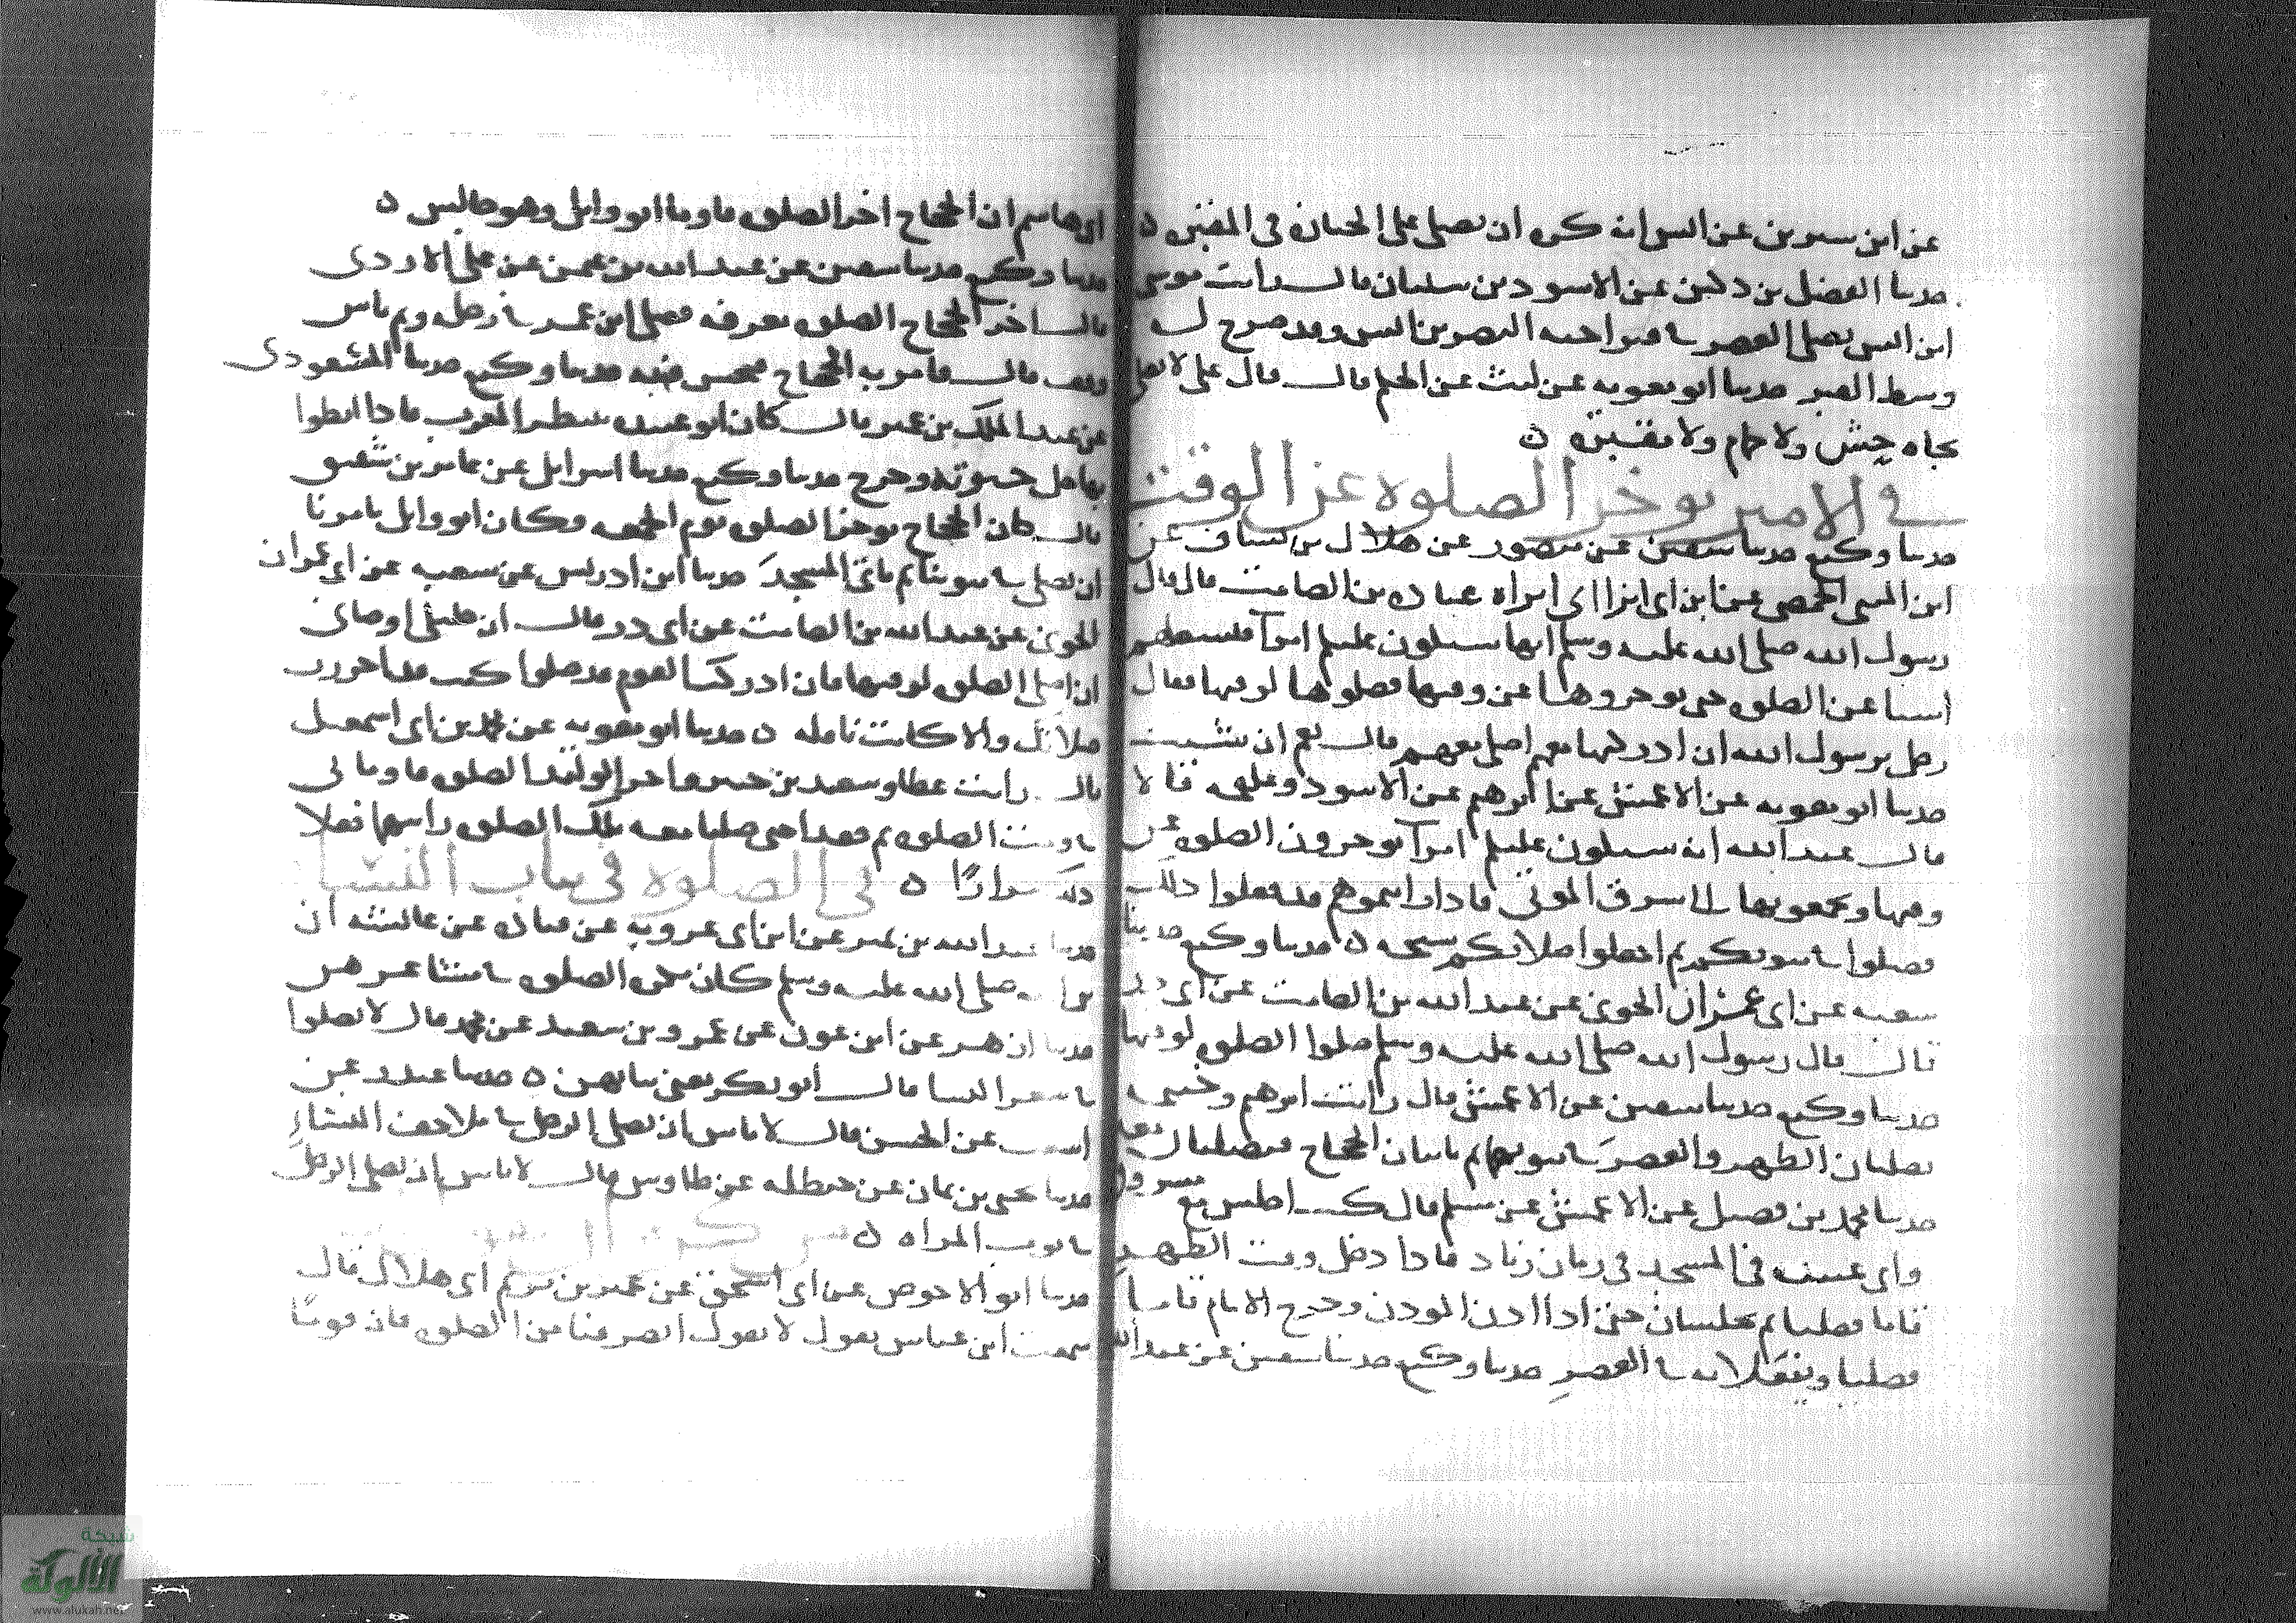 عن ابن سيرين عن انس انه كره ان يصلى على الجنازة في المقبرة ٥
حدثنا الفضل بن دكين عن الاسود بن سليمان قال رايت موسى
ابن انس يصلى العصر في قبر اخيه النضر بن انس وقد ضرح له
وسط القبر حدثنا ابو معويه عن ليث عن الحكم قال قال على لا تصلى
تجاه حش ولا حمام ولا مقبرة ٥
في الامير يوخر الصلوة عن الوقت
حدثنا وكيع حدثنا سفين عن منصور عن هلال بن يساف عن
ابن المثنى الحمصى عن ابن ابى امراة عبادة بن الصامت قال قال
رسول الله صلى الله عليه وسلم انها ستكون عليكم امرآ تشغلهم
اشيا عن الصلوة حتى يوخروها عن وقتها فصلوها لوقتها فقال
رجل يرسول الله ان ادركتها معهم اصلى معهم قال نعم ان شيت
حدثنا ابو معويه عن الاعمش عن ابرهيم عن الاسود وعلقمة قالا
قال عبد الله انه ستكون عليكم امرآ يوخرون الصلوة عن
وقتها ويخنقونها الى شرق الموتى فاذا رايتموهم قد فعلوا ذلك
فصلوا في بيوتكم ثم اجعلوا صلاتكم سبحه ٥ حدثنا وكيع حدثنا
شعبه عن ابى عمران الجونى عن عبد الله بن الصامت عن ابى ذر
قال قال رسول الله صلى الله عليه وسلم صلوا الصلوة لوقتها
حدثنا وكيع حدثنا سفين عن الاعمش قال رايت ابرهيم وخيثمه
يصليان الظهر والعصر في بيوتهما ثم ياتيان الحجاج فيصليان معه
حدثنا محمد بن فضيل عن الاعمش عن مسلم قال كنت اجلس مع مسروق
وابى عبيده في المسجد في زمان زياد فاذا دخل وقت الظهر
قاما فصليا ثم يجلسان حتى اذا اذن الموذن وخرج الامام قاما
فصليا ويفعلانه في العصر حدثنا وكيع حدثنا سفين عن عبد الله
ابى هاشم ان الحجاج اخر الصلوة فاوما ابو وايل وهو جالس ٥
حدثنا وكيع حدثنا سفين عن عبد الله بن عثمن عن على الازدى
قال اخر الحجاج الصلوة بعرفه فصلى ابن عمر في رحله وثم ناس
وقف قال فامر به الحجاج فحبس حدثنا وكيع حدثنا المسعودى
عن عبد الملك بن عمير قال كان ابو عبيده ينتظر المغرب فاذا ابطوا
بها حل حبوته وخرج حدثنا وكيع حدثنا اسرايل عن عامر بن شقيق
قال كان الحجاج يوخر الصلوة يوم الجمعه وكان ابو وايل يامرنا
ان نصلى في بيوتنا ثم ناتى المسجد حدثنا ابن ادريس عن شعبه عن ابى عمران
الجونى عن عبد الله بن الصامت عن ابى ذر قال ان خليلى اوصانى
ان اصلى الصلوة لوقتها فان ادركت القوم قد صلوا كنت قد احرزت
صلاتك والا كانت نافله ٥ حدثنا ابو معويه عن محمد بن ابى اسمعيل
قال رايت عطا وسعيد بن جبير واخر الوليد الصلوة فاوما لى
في وقت الصلوة ثم قعدا حتى صليا معه تلك الصلوة رايتهما فعلا
ذلك مرارًا ٥ في الصلوة في ثياب النسا
حدثنا عبد الله بن نمير عن ابن ابى عروبه عن قتاده عن عائشه ان
صلى الله عليه وسلم كان يكره الصلوة في مشاعرهن
حدثنا ازهر عن ابن عون عن عمرو بن سعيد عن محمد قال لا تصلوا
في شعر النسا قال ابو بكر يعنى ثيابهن ٥ حدثنا عن
اشعث عن الحسن قال لا باس ان يصلى الرجل في ملاحف النساء
حدثنا يحيى بن يمان عن حنظله عن طاوس قال لا باس ان يصلى الرجل
في ثوب المراه ٥
حدثنا ابو الاحوص عن ابى اسحق عن عمير بن تريم ابى هلال قال
سمعت ابن عباس يقول لا يقول انصرفنا من الصلوة فان قومًا
شبكة
الألوكة
www.alukah.net